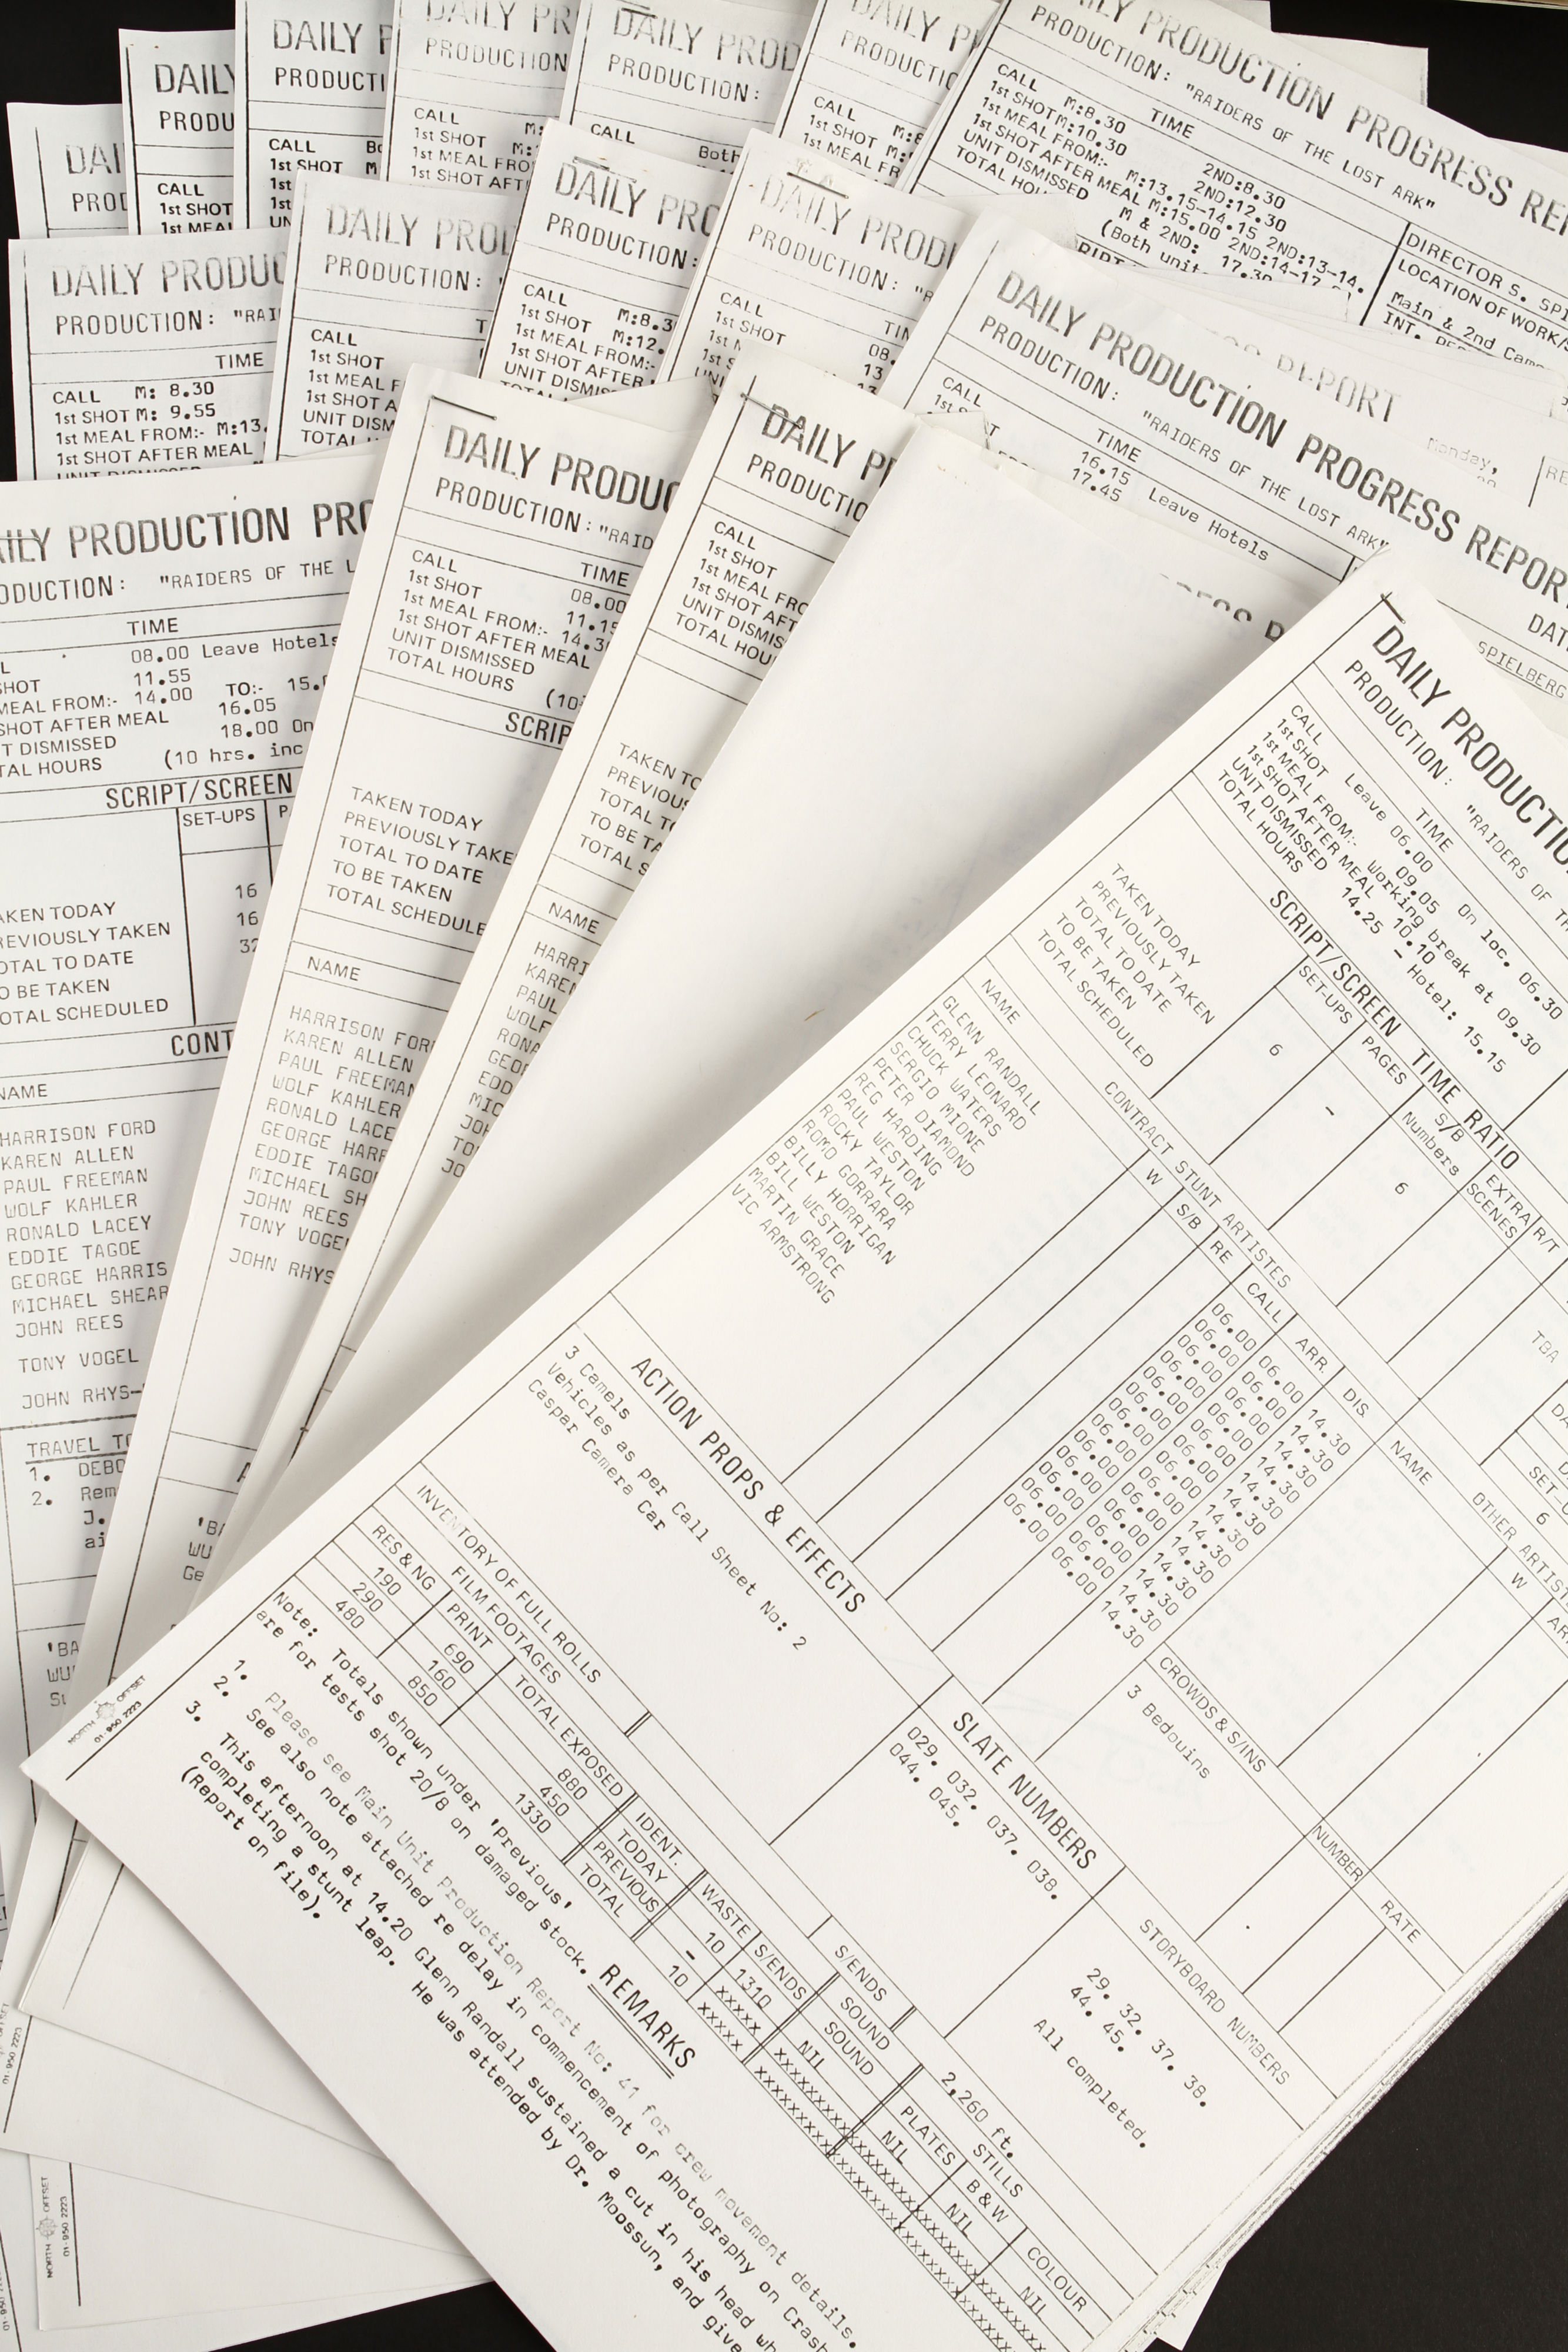 DAILY PRODUCTION PROGRESS RE
PRODUCTION: "RAIDERS OF THE LOST ARK"
TIME
CALL M:8.30 2ND:8.30
1st SHOT M:10.30 2ND:12.30
1st MEAL FROM:- M:13.15-14.15 2ND:13-14.
1st SHOT AFTER MEAL M:15.00 2ND:14-17
UNIT DISMISSED M & 2ND: 17.30
TOTAL (Both
DIRECTOR S. SPI
LOCATION OF WORK/S
Main & 2nd Cam
INT.
DAILY P
PRODUCTI
CALL
1st SHOT
DAILY PR
PRODUCTION
CALL M:
1st SHOT
1st MEAL FRO
1st SHOT AFT
DAILY PROD
PRODUCTION:
CALL Both
DAILY P
PRODUCTIO
CALL
1st SHOT
1st MEAL FR
DAILY
PRODU
CALL
1st SHOT
1st MEAL
DAILY PRODUC
PRODUCTION: "RAI
TIME
CALL M: 8.30
1st SHOT M: 9.55
1st MEAL FROM:- M:13.
1st SHOT AFTER MEAL
UNIT DISMISSED
DAILY PROD
PRODUCTION:
CALL
1st SHOT
1st MEAL F
1st SHOT A
UNIT DISM
TOTAL
DAILY PRO
PRODUCTION:
CALL M:8.3
1st SHOT M:12.
1st MEAL FROM:-
1st SHOT AFTER
UNIT DISMISS
DAILY PROD
PRODUCTION: "R
CALL
1st SHOT 08.
13
REPORT
Monday,
DAILY PRODUCTION PROGRESS REPOR
PRODUCTION: "RAIDERS OF THE LOST ARK"
TIME
CALL 16.15 Leave Hotels
17.45
DAT
SPIELBERG
DAILY PRODUCTION PRO
PRODUCTION: "RAIDERS OF THE L
TIME
08.00 Leave Hotels
SHOT 11.55
MEAL FROM:- 14.00 TO:- 15.
SHOT AFTER MEAL 16.05
T DISMISSED 18.00 On
TAL HOURS (10 hrs. inc
SCRIPT/SCREEN
SET-UPS
AKEN TODAY 16
REVIOUSLY TAKEN 16
OTAL TO DATE 32
O BE TAKEN
OTAL SCHEDULED
CONT
NAME
HARRISON FORD
KAREN ALLEN
PAUL FREEMAN
WOLF KAHLER
RONALD LACEY
EDDIE TAGOE
GEORGE HARRIS
MICHAEL SHEAR
JOHN REES
TONY VOGEL
JOHN RHYS-
TRAVEL TO
1. DEBO
2. Rem
J.
ai
'BA
WU
DAILY PRODUC
PRODUCTION: "RAID
TIME
CALL 08.00
1st SHOT 11.15
1st MEAL FROM:- 14.3
1st SHOT AFTER MEAL
UNIT DISMISSED
TOTAL HOURS (10
SCRIP
TAKEN TODAY
PREVIOUSLY TAKE
TOTAL TO DATE
TO BE TAKEN
TOTAL SCHEDULE
NAME
HARRISON FOR
KAREN ALLEN
PAUL FREEMAN
WOLF KAHLER
RONALD LACE
GEORGE HARR
EDDIE TAGO
MICHAEL SH
JOHN REES
TONY VOGE
JOHN RHYS
'BA
WU
Ge
DAILY P
PRODUCTIO
CALL
1st SHOT
1st MEAL FRO
1st SHOT AFT
UNIT DISMIS
TOTAL HOU
TAKEN TO
PREVIOUS
TOTAL T
TO BE TA
TOTAL S
NAME
HARRI
KAREN
PAUL
WOLF
RONA
GEO
EDD
MIC
JOH
TO
JO
DAILY PRODUCTIO
PRODUCTION: "RAIDERS OF TH
TIME
CALL Leave 06.00 On loc. 06.30
1st SHOT 09.05
1st MEAL FROM:- Working break at 09.30
1st SHOT AFTER MEAL 10.10
UNIT DISMISSED 14.25 - Hotel: 15.15
TOTAL HOURS
SCRIPT/SCREEN TIME RATIO
SET-UPS PAGES S/B Numbers EXTRA SCENES R/T
TAKEN TODAY 6 - 6
PREVIOUSLY TAKEN
TOTAL TO DATE
TO BE TAKEN
TOTAL SCHEDULED
TBA
SET-U
6
CONTRACT STUNT ARTISTES
NAME W S/B RE CALL ARR. DIS.
GLENN RANDALL 06.00 06.00 14.30
TERRY LEONARD 06.00 06.00 14.30
CHUCK WATERS 06.00 06.00 14.30
SERGIO MIONE 06.00 06.00 14.30
PETER DIAMOND 06.00 06.00 14.30
REG HARDING 06.00 06.00 14.30
PAUL WESTON 06.00 06.00 14.30
ROCKY TAYLOR 06.00 06.00 14.30
ROMO GORRARA 06.00 06.00 14.30
BILLY HORRIGAN 06.00 06.00 14.30
BILL WESTON 06.00 06.00 14.30
MARTIN GRACE 06.00 06.00 14.30
VIC ARMSTRONG 06.00 06.00 14.30
OTHER ARTIS
NAME W AR
CROWDS & S/INS NUMBER RATE
3 Bedouins
ACTION PROPS & EFFECTS
3 Camels
Vehicles as per Call Sheet No: 2
Caspar Camera Car
SLATE NUMBERS
029. 032. 037. 038.
044. 045.
STORYBOARD NUMBERS
29. 32. 37. 38.
44. 45.
All completed.
INVENTORY OF FULL ROLLS S/ENDS 2,260 ft.
FILM FOOTAGES
RES & NG PRINT TOTAL EXPOSED IDENT. WASTE S/ENDS SOUND PLATES STILLS B & W COLOUR
190 690 880 TODAY 10 1310 SOUND NIL NIL NIL NIL
290 160 450 PREVIOUS - xxxxx
480 850 1330 TOTAL 10 xxxxx
REMARKS
Note: Totals shown under 'Previous'
are for tests shot 20/8 on damaged stock.
1. Please see Main Unit Production Report No: 41 for crew movement details.
2. See also note attached re delay in commencement of photography on Crash
3. This afternoon at 14.20 Glenn Randall sustained a cut in his head wh
completing a stunt leap. He was attended by Dr. Moossun, and give
(Report on file).
NORTH OFFSET
01-950 2223
NORTH OFFSET
01-950 2223